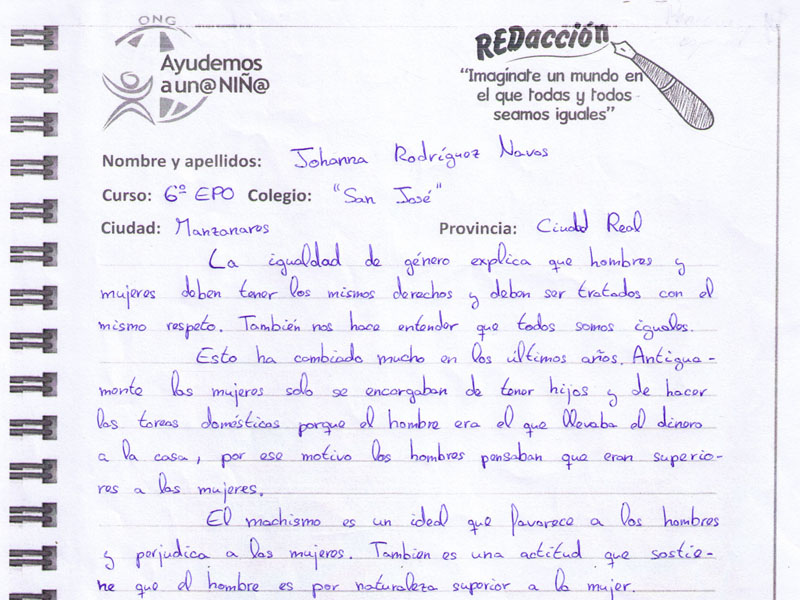 ONG
Ayudemos
a un@ NIÑ@
REDacción
"Imagínate un mundo en
el que todas y todos
seamos iguales"
Nombre y apellidos: Johanna Rodríguez Navas
Curso: 6º EPO Colegio: "San José"
Ciudad: Manzanares Provincia: Ciudad Real
La igualdad de género explica que hombres y
mujeres deben tener los mismos derechos y deben ser tratados con el
mismo respeto. También nos hace entender que todos somos iguales.
Esto ha cambiado mucho en los últimos años. Antigua-
mente las mujeres solo se encargaban de tener hijos y de hacer
las tareas domésticas porque el hombre era el que llevaba el dinero
a la casa, por ese motivo los hombres pensaban que eran superio-
res a las mujeres.
El machismo es un ideal que favorece a los hombres
y perjudica a las mujeres. Tambien es una actitud que sostie-
ne que el hombre es por naturaleza superior a la mujer.